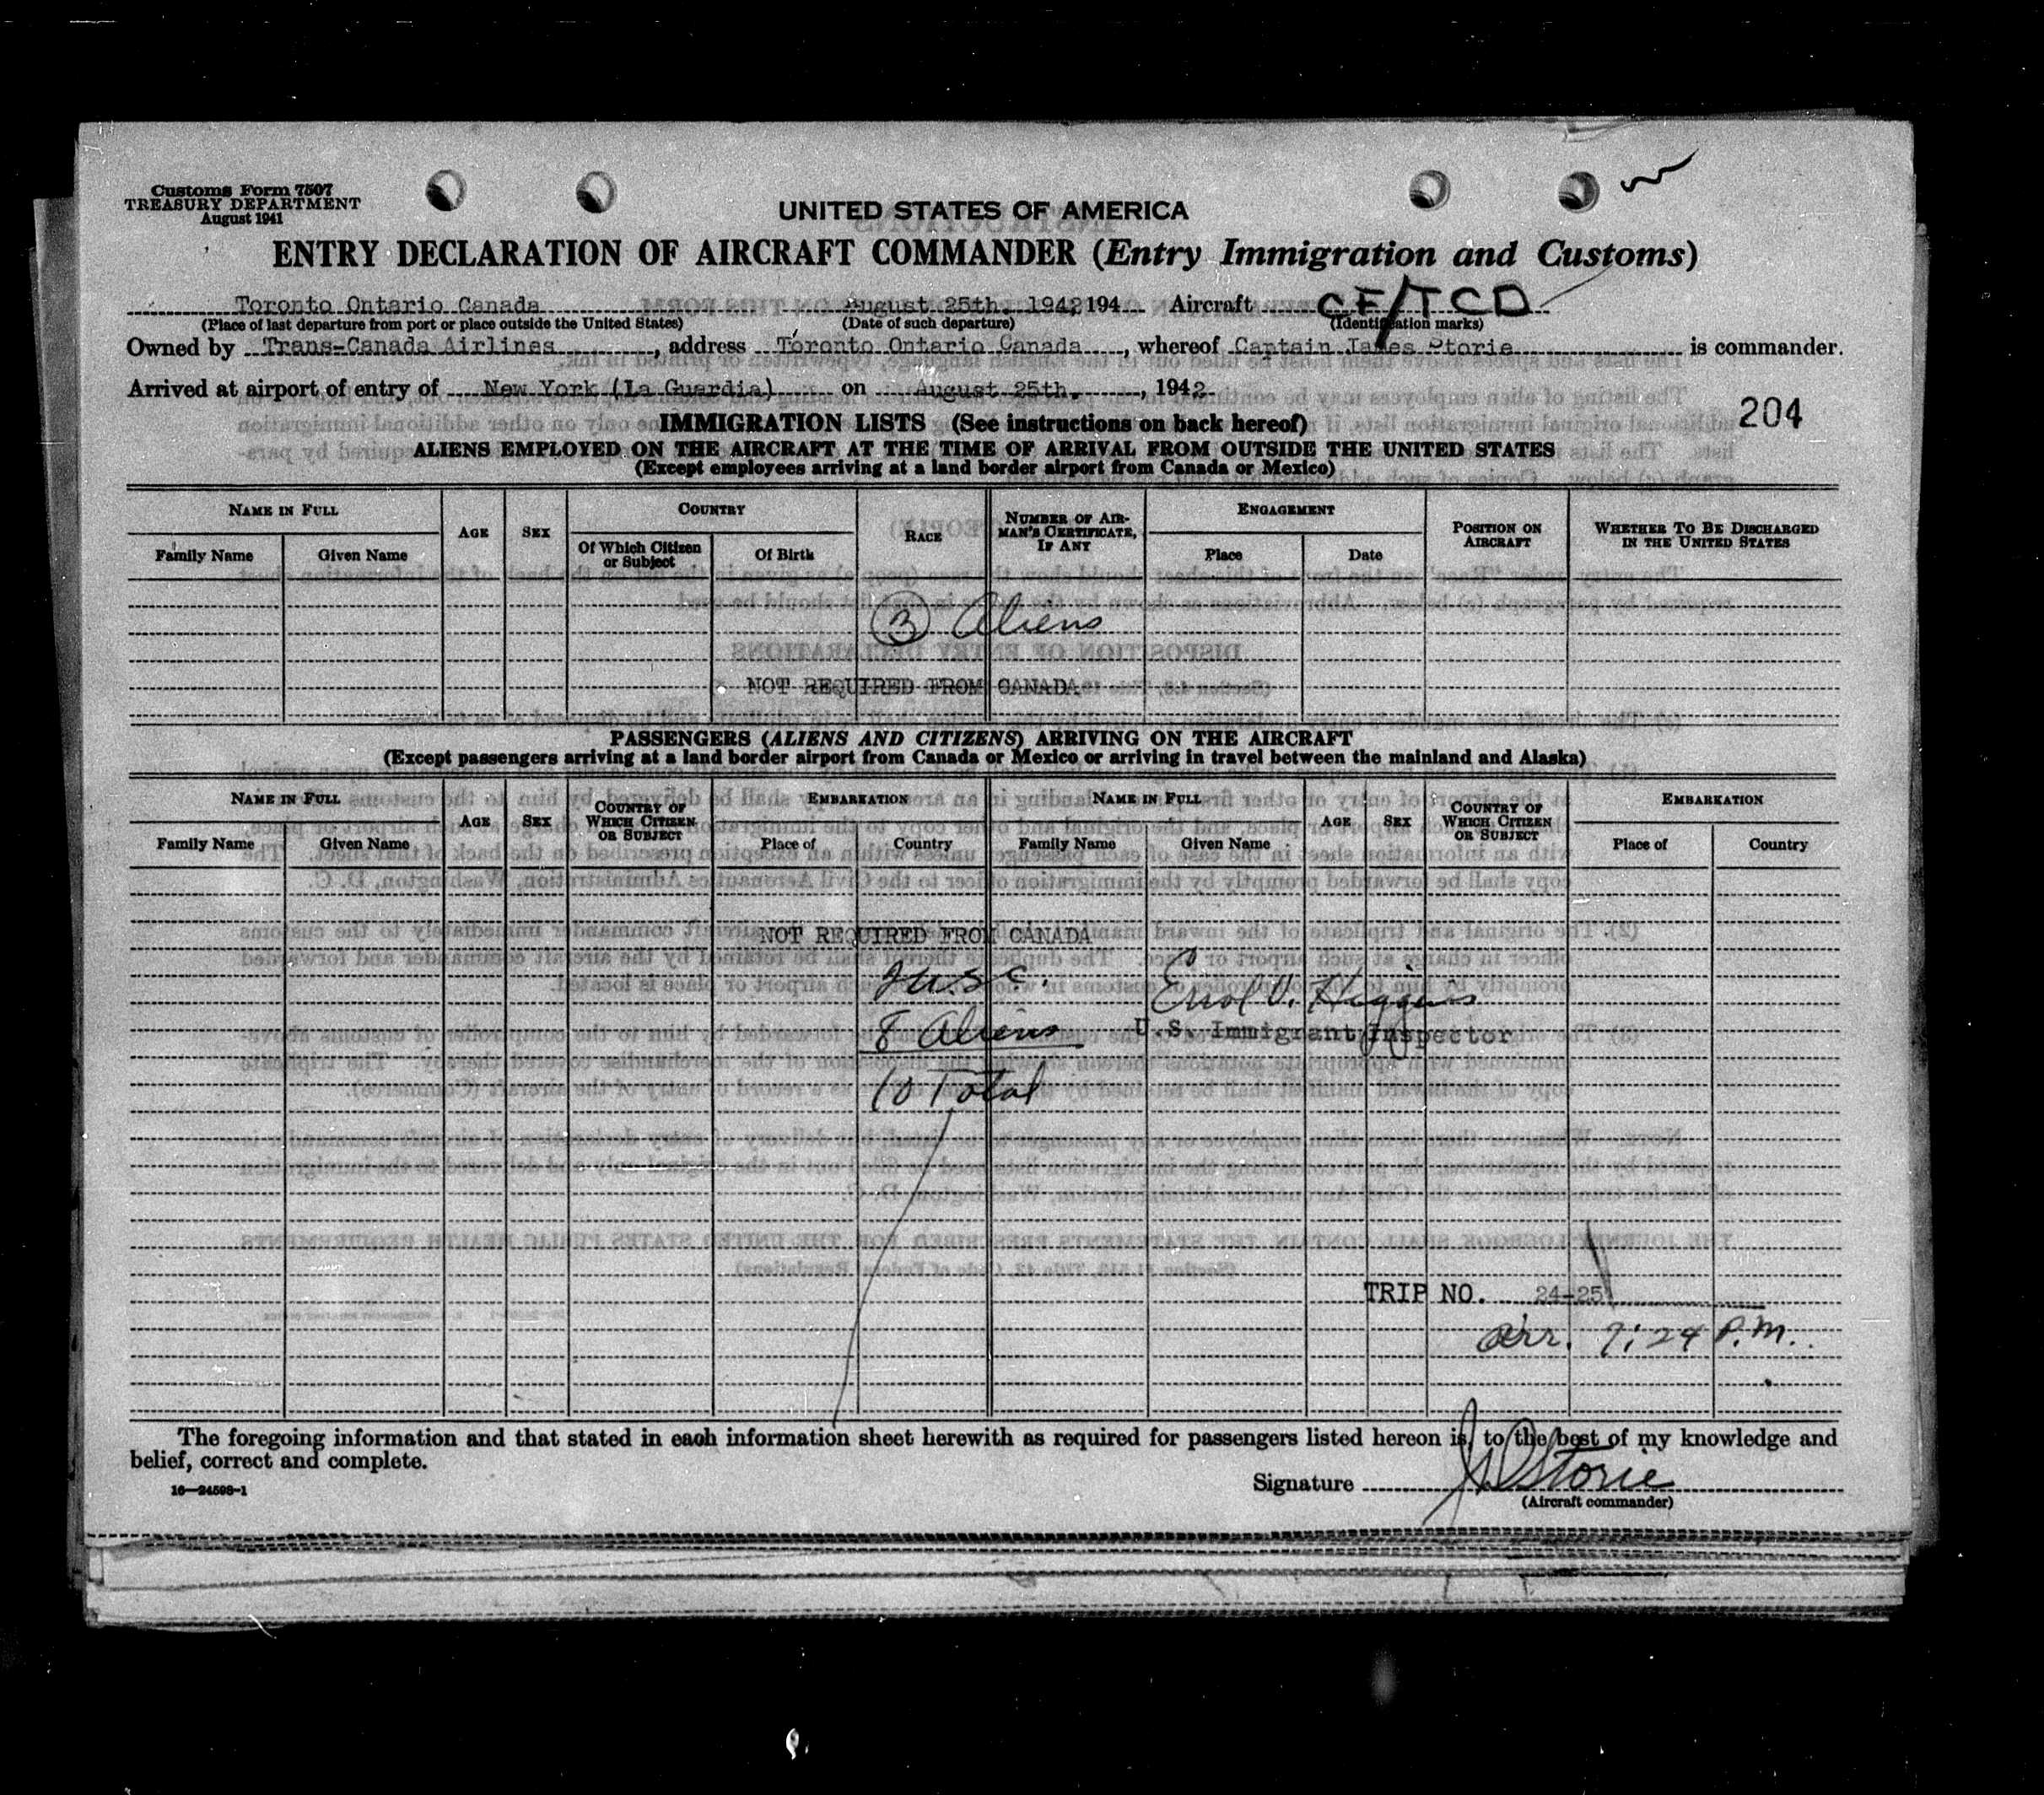 Customs Form 7507
TREASURY DEPARTMENT
August 1941
UNITED STATES OF AMERICA
ENTRY DECLARATION OF AIRCRAFT COMMANDER (Entry Immigration and Customs)
Toronto Ontario Canada August 25th. 1942 194 Aircraft CF/TCD
(Place of last departure from port or place outside the United States) (Date of such departure) (Identification marks)
Owned by Trans-Canada Airlines, address Toronto Ontario Canada, whereof Captain James Storie is commander.
Arrived at airport of entry of New York (La Guardia) on August 25th., 1942
204
IMMIGRATION LISTS (See instructions on back hereof)
ALIENS EMPLOYED ON THE AIRCRAFT AT THE TIME OF ARRIVAL FROM OUTSIDE THE UNITED STATES
(Except employees arriving at a land border airport from Canada or Mexico)
NAME IN FULL AGE SEX COUNTRY RACE NUMBER OF AIRMAN'S CERTIFICATE, IF ANY ENGAGEMENT POSITION ON AIRCRAFT WHETHER TO BE DISCHARGED IN THE UNITED STATES
Family Name Given Name Of Which Citizen or Subject Of Birth Place Date
3 Aliens
NOT REQUIRED FROM CANADA
PASSENGERS (ALIENS AND CITIZENS) ARRIVING ON THE AIRCRAFT
(Except passengers arriving at a land border airport from Canada or Mexico or arriving in travel between the mainland and Alaska)
NAME IN FULL AGE SEX COUNTRY OF WHICH CITIZEN OR SUBJECT EMBARKATION NAME IN FULL AGE SEX COUNTRY OF WHICH CITIZEN OR SUBJECT EMBARKATION
Family Name Given Name Place of Country Family Name Given Name Place of Country
NOT REQUIRED FROM CANADA
2 U.S.C. Errol V. Higgins
8 Aliens U.S. Immigrant Inspector
10 Total
TRIP NO. 24-25
arr. 7:24 P.M.
The foregoing information and that stated in each information sheet herewith as required for passengers listed hereon is, to the best of my knowledge and
belief, correct and complete.
Signature Storie
16—24598-1 (Aircraft commander)